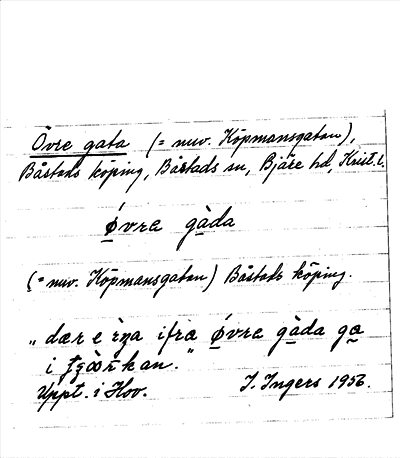 Övre gata (= nuv. Köpmansgatan),
Båstads köping, Båstads sn, Bjäre hd, Krist. l.
øvra gàda
(= nuv. Köpmansgatan) Båstads köping.
„ dær e iŋa ifrå øvra gàda
i kan."
Uppt. i Hov. I. Ingers 1956.